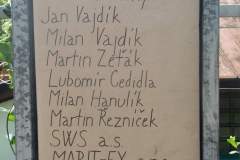 Jan Vajdík
Milan Vajdík
Martin Zeťák
Lubomír Cedidla
Milan Hanulík
Martin Řezníček
SWS a.s.